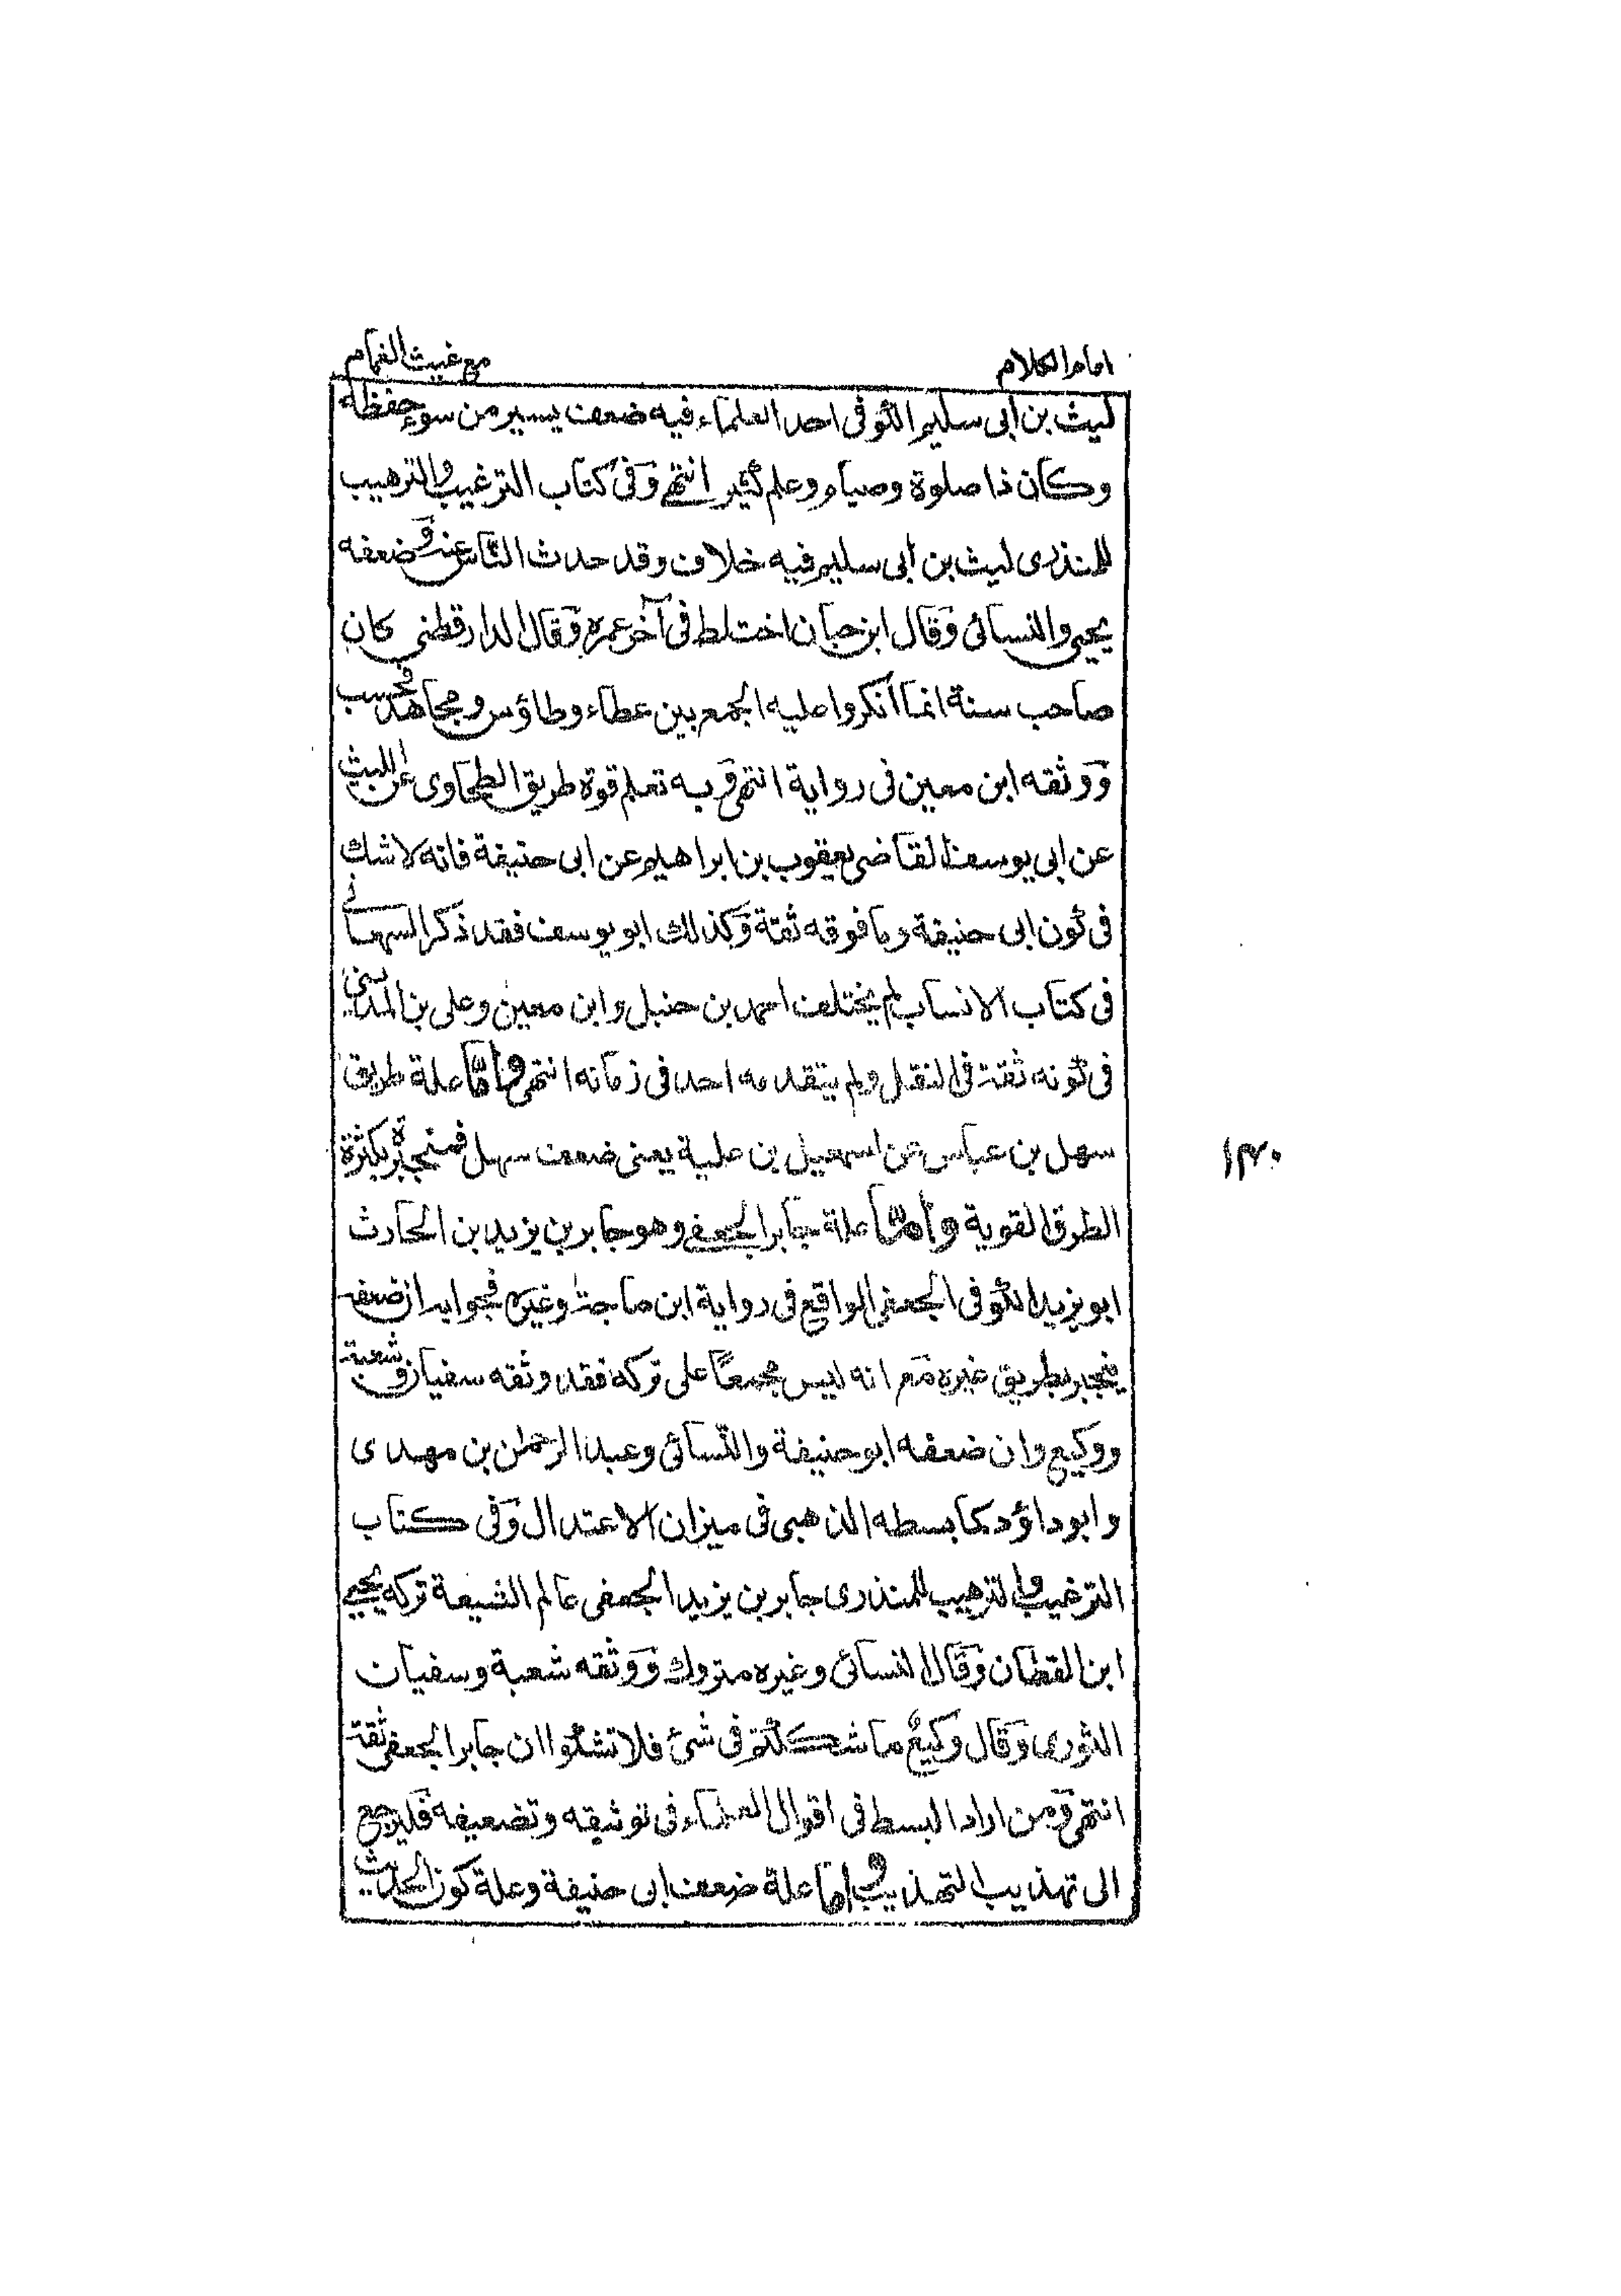 امام الكلام
مع غيث الغمام
ليث بن ابى سليم الكوفى احد العلماء فيه ضعف يسير من سوء حفظه
وكان ذا صلوة وصيام وعلم كثير انتهى وفى كتاب الترغيب والترهيب
للمنذرى ليث بن ابى سليم فيه خلاف وقد حدث الناس عنه وضعفه
يحيى والنسائى وقال ابن حبان اختلط فى آخر عمره وقال الدارقطنى كان
صاحب سنة انما أنكروا عليه الجمع بين عطاء وطاؤس ومجاهد فحسب
ووثقه ابن معين فى رواية انتهى وبه تعلم قوة طريق الطحاوى عن الليث
عن ابى يوسف القاضى يعقوب بن ابراهيم عن ابى حنيفة فانه لا شك
فى كون ابى حنيفة وما فوقه ثقة وكذلك ابو يوسف فقد ذكر السمعانى
فى كتاب الانساب لم يختلف احمد بن حنبل وابن معين وعلى بن المدينى
فى كونه ثقة فى النقل ولم يتقدمه احد فى زمانه انتهى وامّا علة طريق
سهل بن عباس عن اسمعيل بن علية يعنى ضعف سهل فمنجبرة بكثرة
الطرق القوية وامّا علة جابر الجعفى وهو جابر بن يزيد بن الحارث
ابو يزيد الكوفى الجعفى الواقع فى رواية ابن ماجة وغيره فجوابه ان ضعفه
ينجبر بطريق غيره مع انه ليس مجمعًا على تركه فقد وثقه سفيان وشعبة
ووكيع وان ضعفه ابو حنيفة والنّسائى وعبد الرحمن بن مهدى
وابو داؤد كما بسطه الذهبى فى ميزان الاعتدال وفى كتاب
الترغيب والترهيب للمنذرى جابر بن يزيد الجعفى عالم الشيعة تركه يحيى
ابن القطان وقال النسائى وغيره متروك ووثقه شعبة وسفيان
الثورى وقال وكيعٌ ما شككتم فى شئ فلا تشكوا ان جابر الجعفى ثقة
انتهى ومن اراد البسط فى اقوال العلماء فى توثيقه وتضعيفه فليرجع
الى تهذيب التهذيب وامّا علة ضعف ابى حنيفة وعلة كون الحديث
۱۴۰